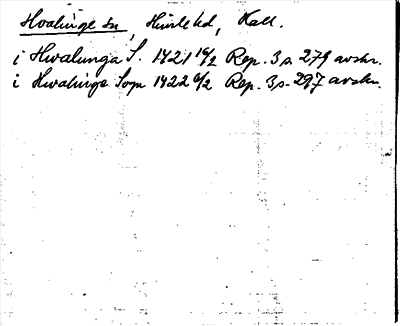 Hvalinge sn, Himle hd, Hall.
i Hwalunga S. 1421 16/2 Rep. 3 s. 279 avskr.
i Hwalinge Sogn 1422 6/2 Rep. 3 s. 297 avskr.